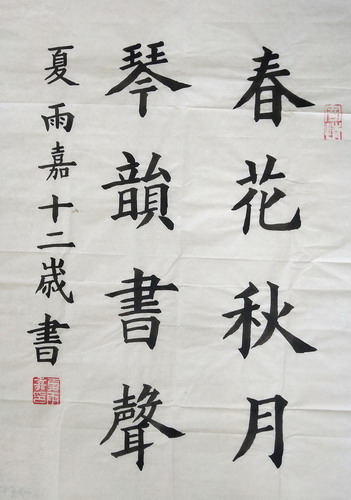 春花秋月
琴韻書聲
夏雨嘉十二歲書